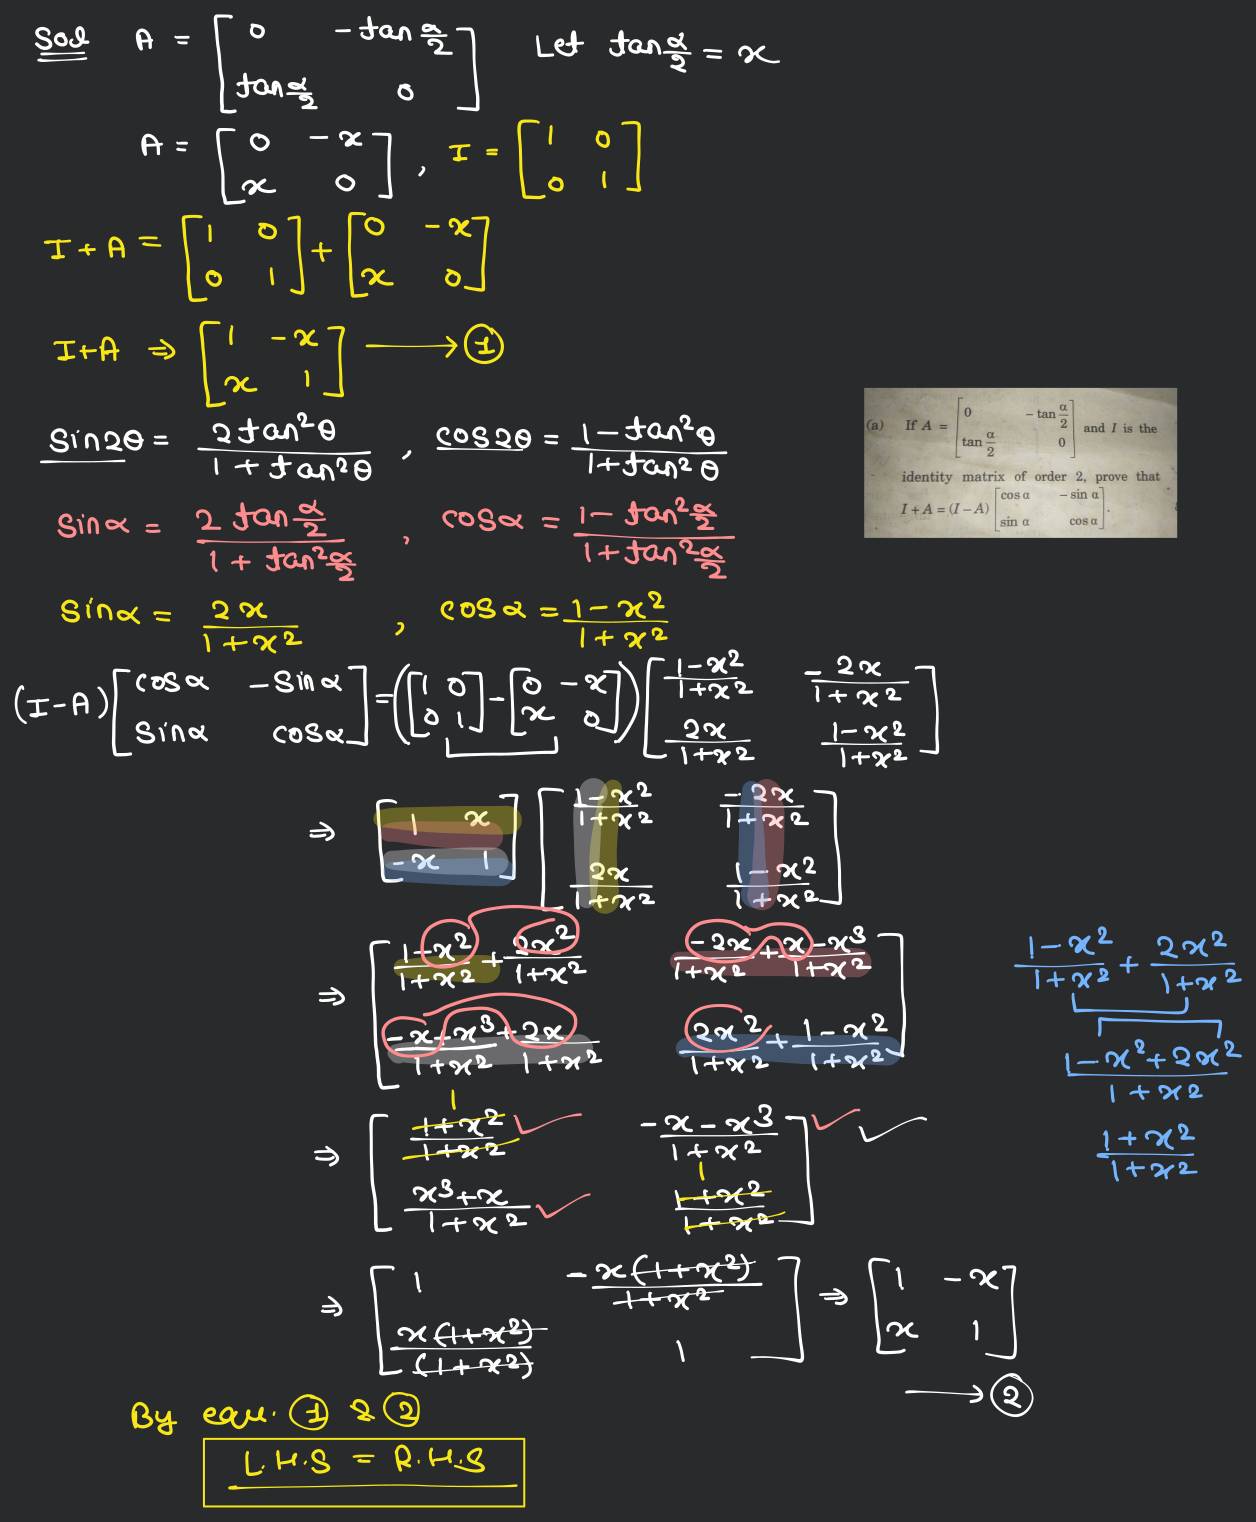 Sol A = [ 0 -tan α/2 ; tan α/2 0 ] Let tan α/2 = x
A = [ 0 -x ; x 0 ] , I = [ 1 0 ; 0 1 ]
I + A = [ 1 0 ; 0 1 ] + [ 0 -x ; x 0 ]
I+A ⇒ [ 1 -x ; x 1 ] ⟶ ①
Sin2θ = 2tan²θ / 1 + tan²θ , cos2θ = 1 - tan²θ / 1+tan²θ
Sinα = 2 tan α/2 / 1 + tan² α/2 , cosα = 1 - tan² α/2 / 1 + tan² α/2
Sinα = 2x / 1+x² , cosα = 1-x² / 1+x²
(a) If A = [ 0 - tan α/2 ; tan α/2 0 ] and I is the
identity matrix of order 2, prove that
I + A = (I – A) [ cos α – sin α ; sin α cos α ].
(I-A) [ cosα -Sinα ; Sinα cosα ] = ([ 1 0 ; 0 1 ] - [ 0 -x ; x 0 ]) [ 1-x² / 1+x² -2x / 1+x² ; 2x / 1+x² 1-x² / 1+x² ]
⇒ [ 1 x ; -x 1 ] [ 1-x² / 1+x² -2x / 1+x² ; 2x / 1+x² 1-x² / 1+x² ]
⇒ [ 1-x² / 1+x² + 2x² / 1+x² -2x / 1+x² + x-x³ / 1+x² ; -x+x³ / 1+x² + 2x / 1+x² 2x² / 1+x² + 1-x² / 1+x² ]
1-x² / 1+x² + 2x² / 1+x²
1-x²+2x² / 1+x²
1+x² / 1+x²
⇒ [ 1+x² / 1+x² 1 -x-x³ / 1+x² ; x³+x / 1+x² 1+x² / 1+x² 1 ]
⇒ [ 1 -x(1+x²) / 1+x² ; x(1+x²) / (1+x²) 1 ] ⇒ [ 1 -x ; x 1 ]
⟶ ②
By equ. ① & ②
L.H.S = R.H.S